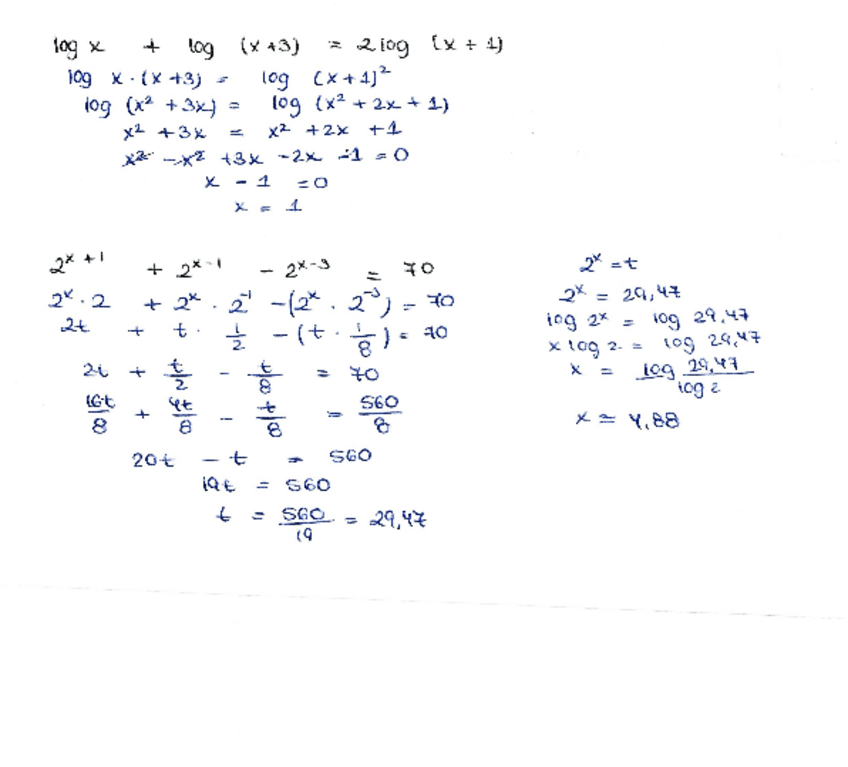 log x + log (x+3) = 2 log (x + 1)
log x · (x+3) = log (x+1)²
log (x² + 3x) = log (x² + 2x + 1)
x² + 3x = x² + 2x + 1
x² - x² + 3x - 2x - 1 = 0
x - 1 = 0
x = 1
2^(x+1) + 2^(x-1) - 2^(x-3) = 70
2^x · 2 + 2^x · 2^-1 - (2^x · 2^-3) = 70
2t + t · 1/2 - (t · 1/8) = 70
2t + t/2 - t/8 = 70
16t/8 + 4t/8 - t/8 = 560/8
20t - t = 560
19t = 560
t = 560/19 = 29,47
2^x = t
2^x = 29,47
log 2^x = log 29,47
x log 2 = log 29,47
x = log 29,47 / log 2
x ≃ 4,88